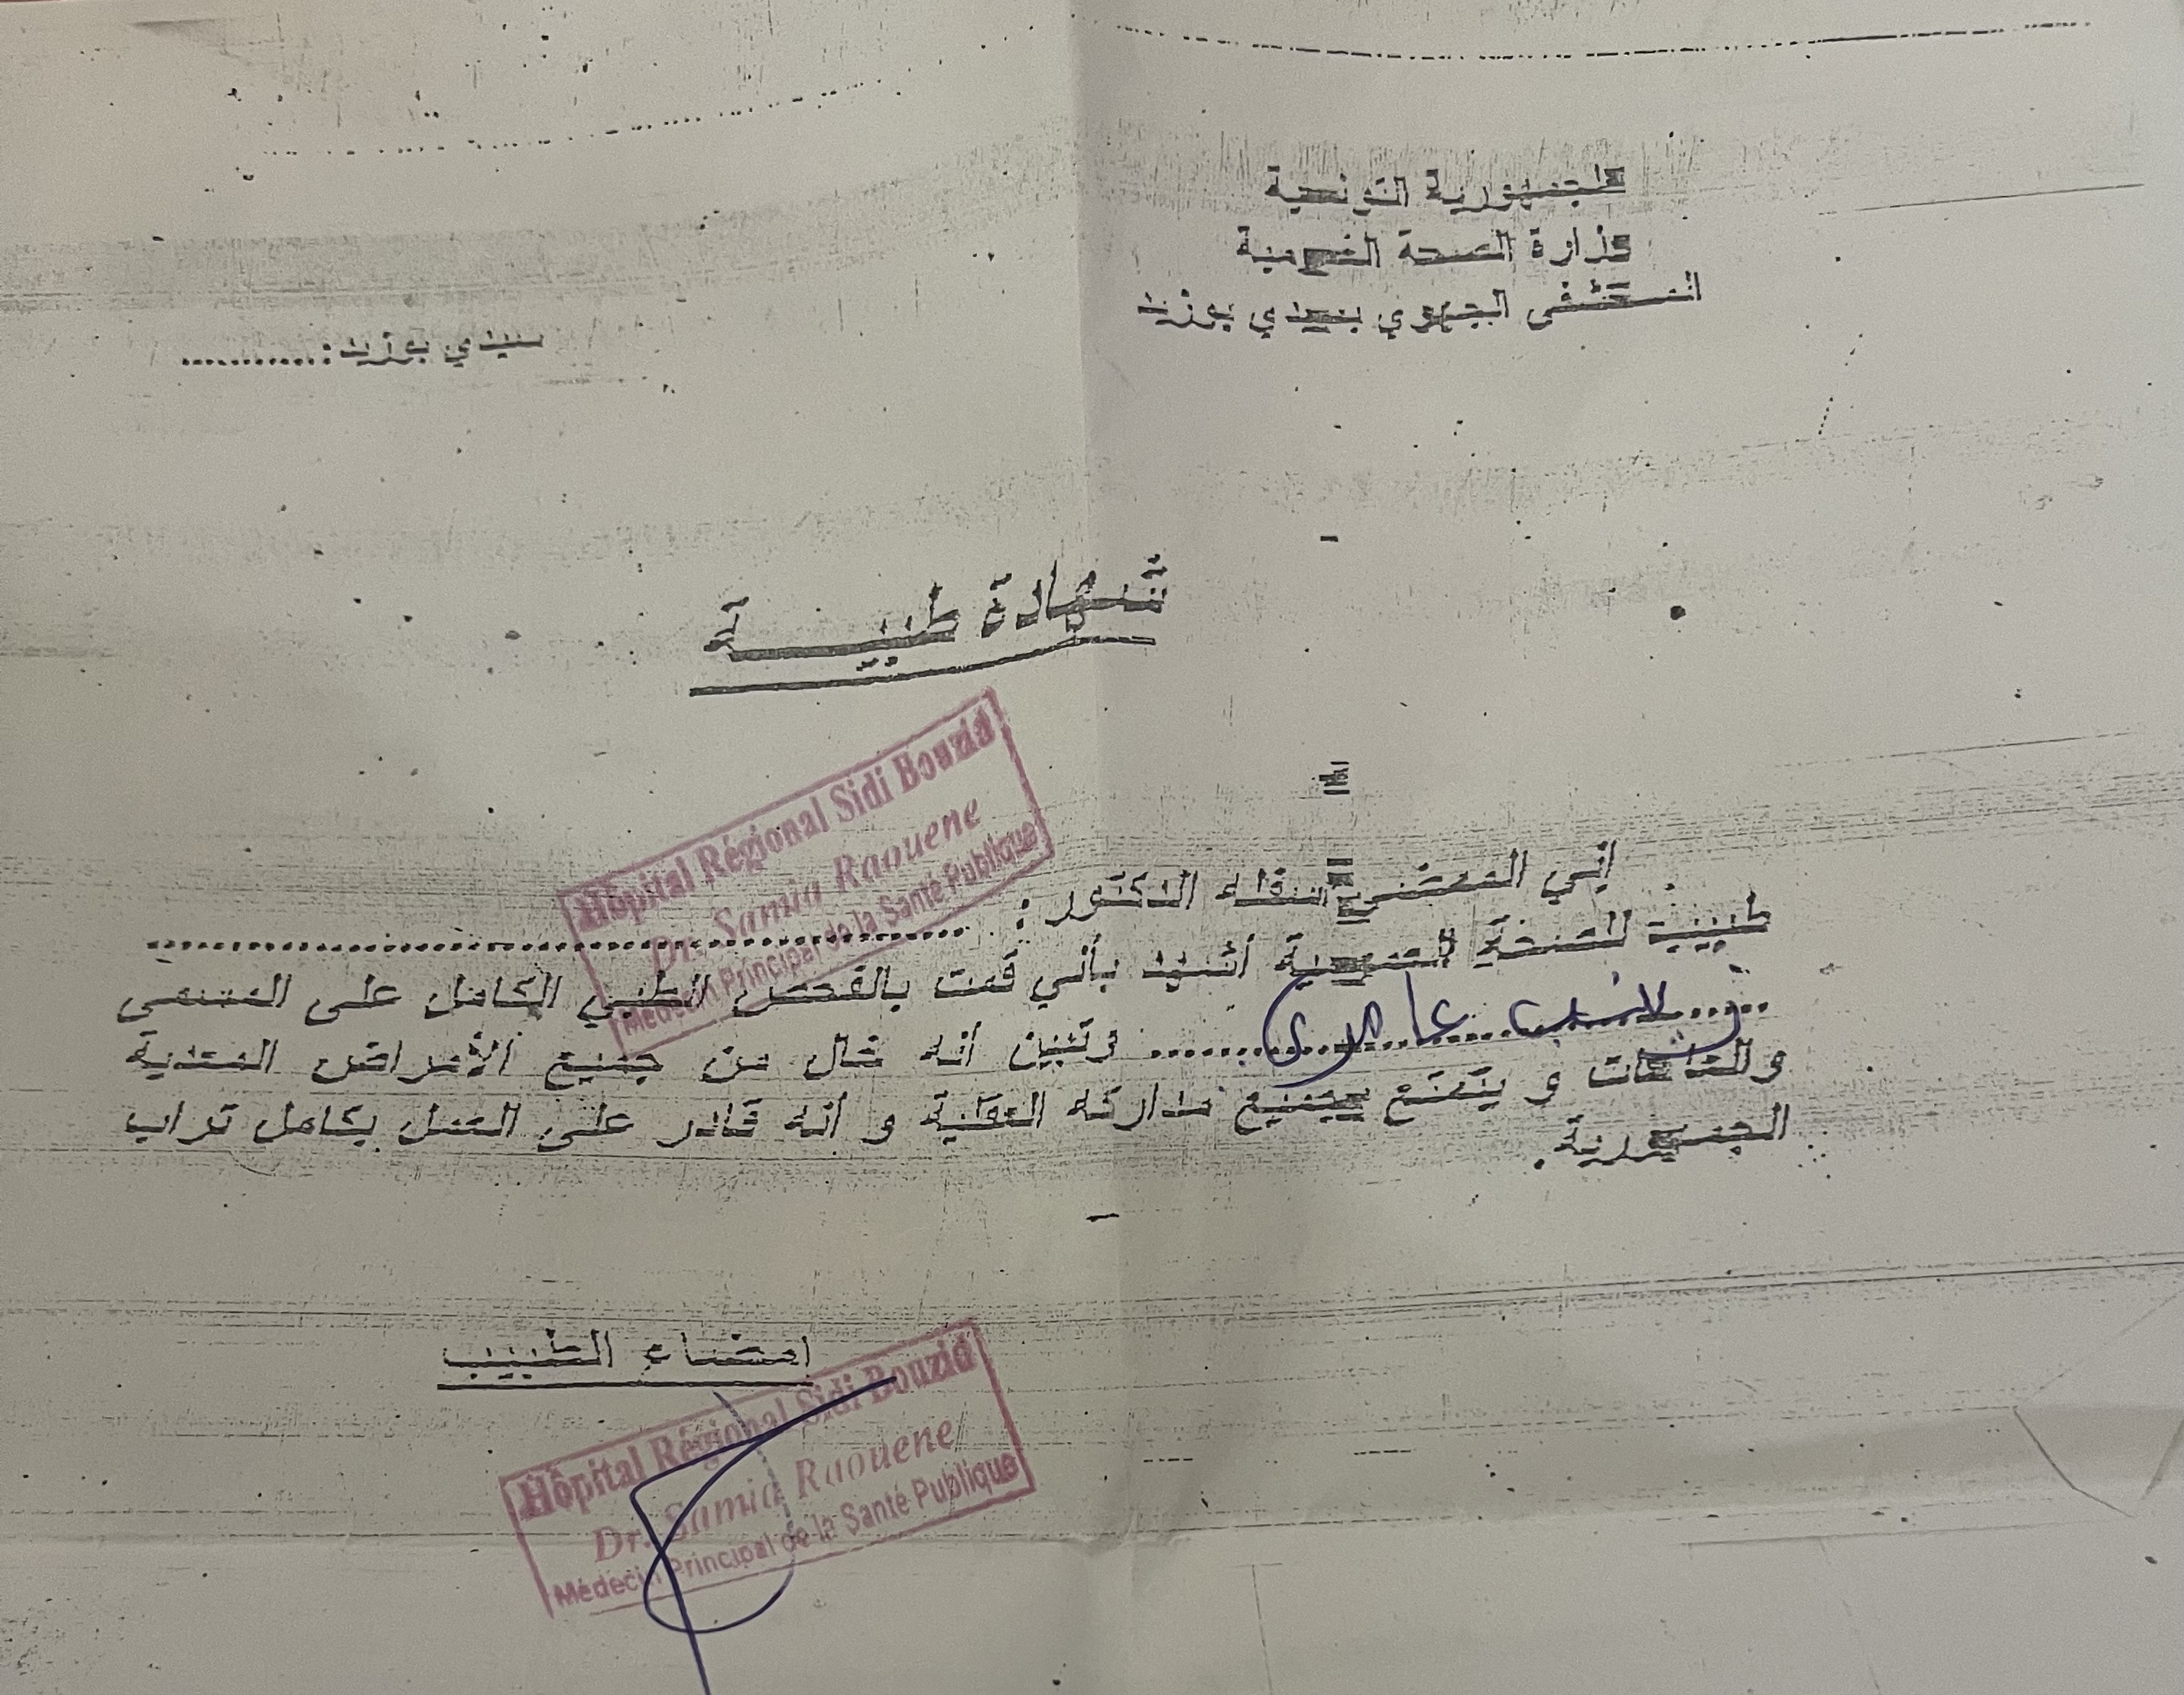 الجمهورية التونسية
وزارة الصحة العمومية
المستشفى الجهوي بسيدي بوزيد
سيدي بوزيد:............
شهادة طبيـــة
Hôpital Régional Sidi Bouzid
Dr. Samia Raouene
Médecin Principal de la Santé Publique
إني الممضي أسفله الدكتور :
طبيبة للصحة العمومية أشهد بأني قمت بالفحص الطبي الكامل على المسمى
وتبين أنه خال من جميع الأمراض المعدية
و يتمتع بجميع مداركه العقلية و أنه قادر على العمل بكامل تراب
الجمهورية.
امضاء الطبيب
Hôpital Régional Sidi Bouzid
Dr. Samia Raouene
Médecin Principal de la Santé Publique